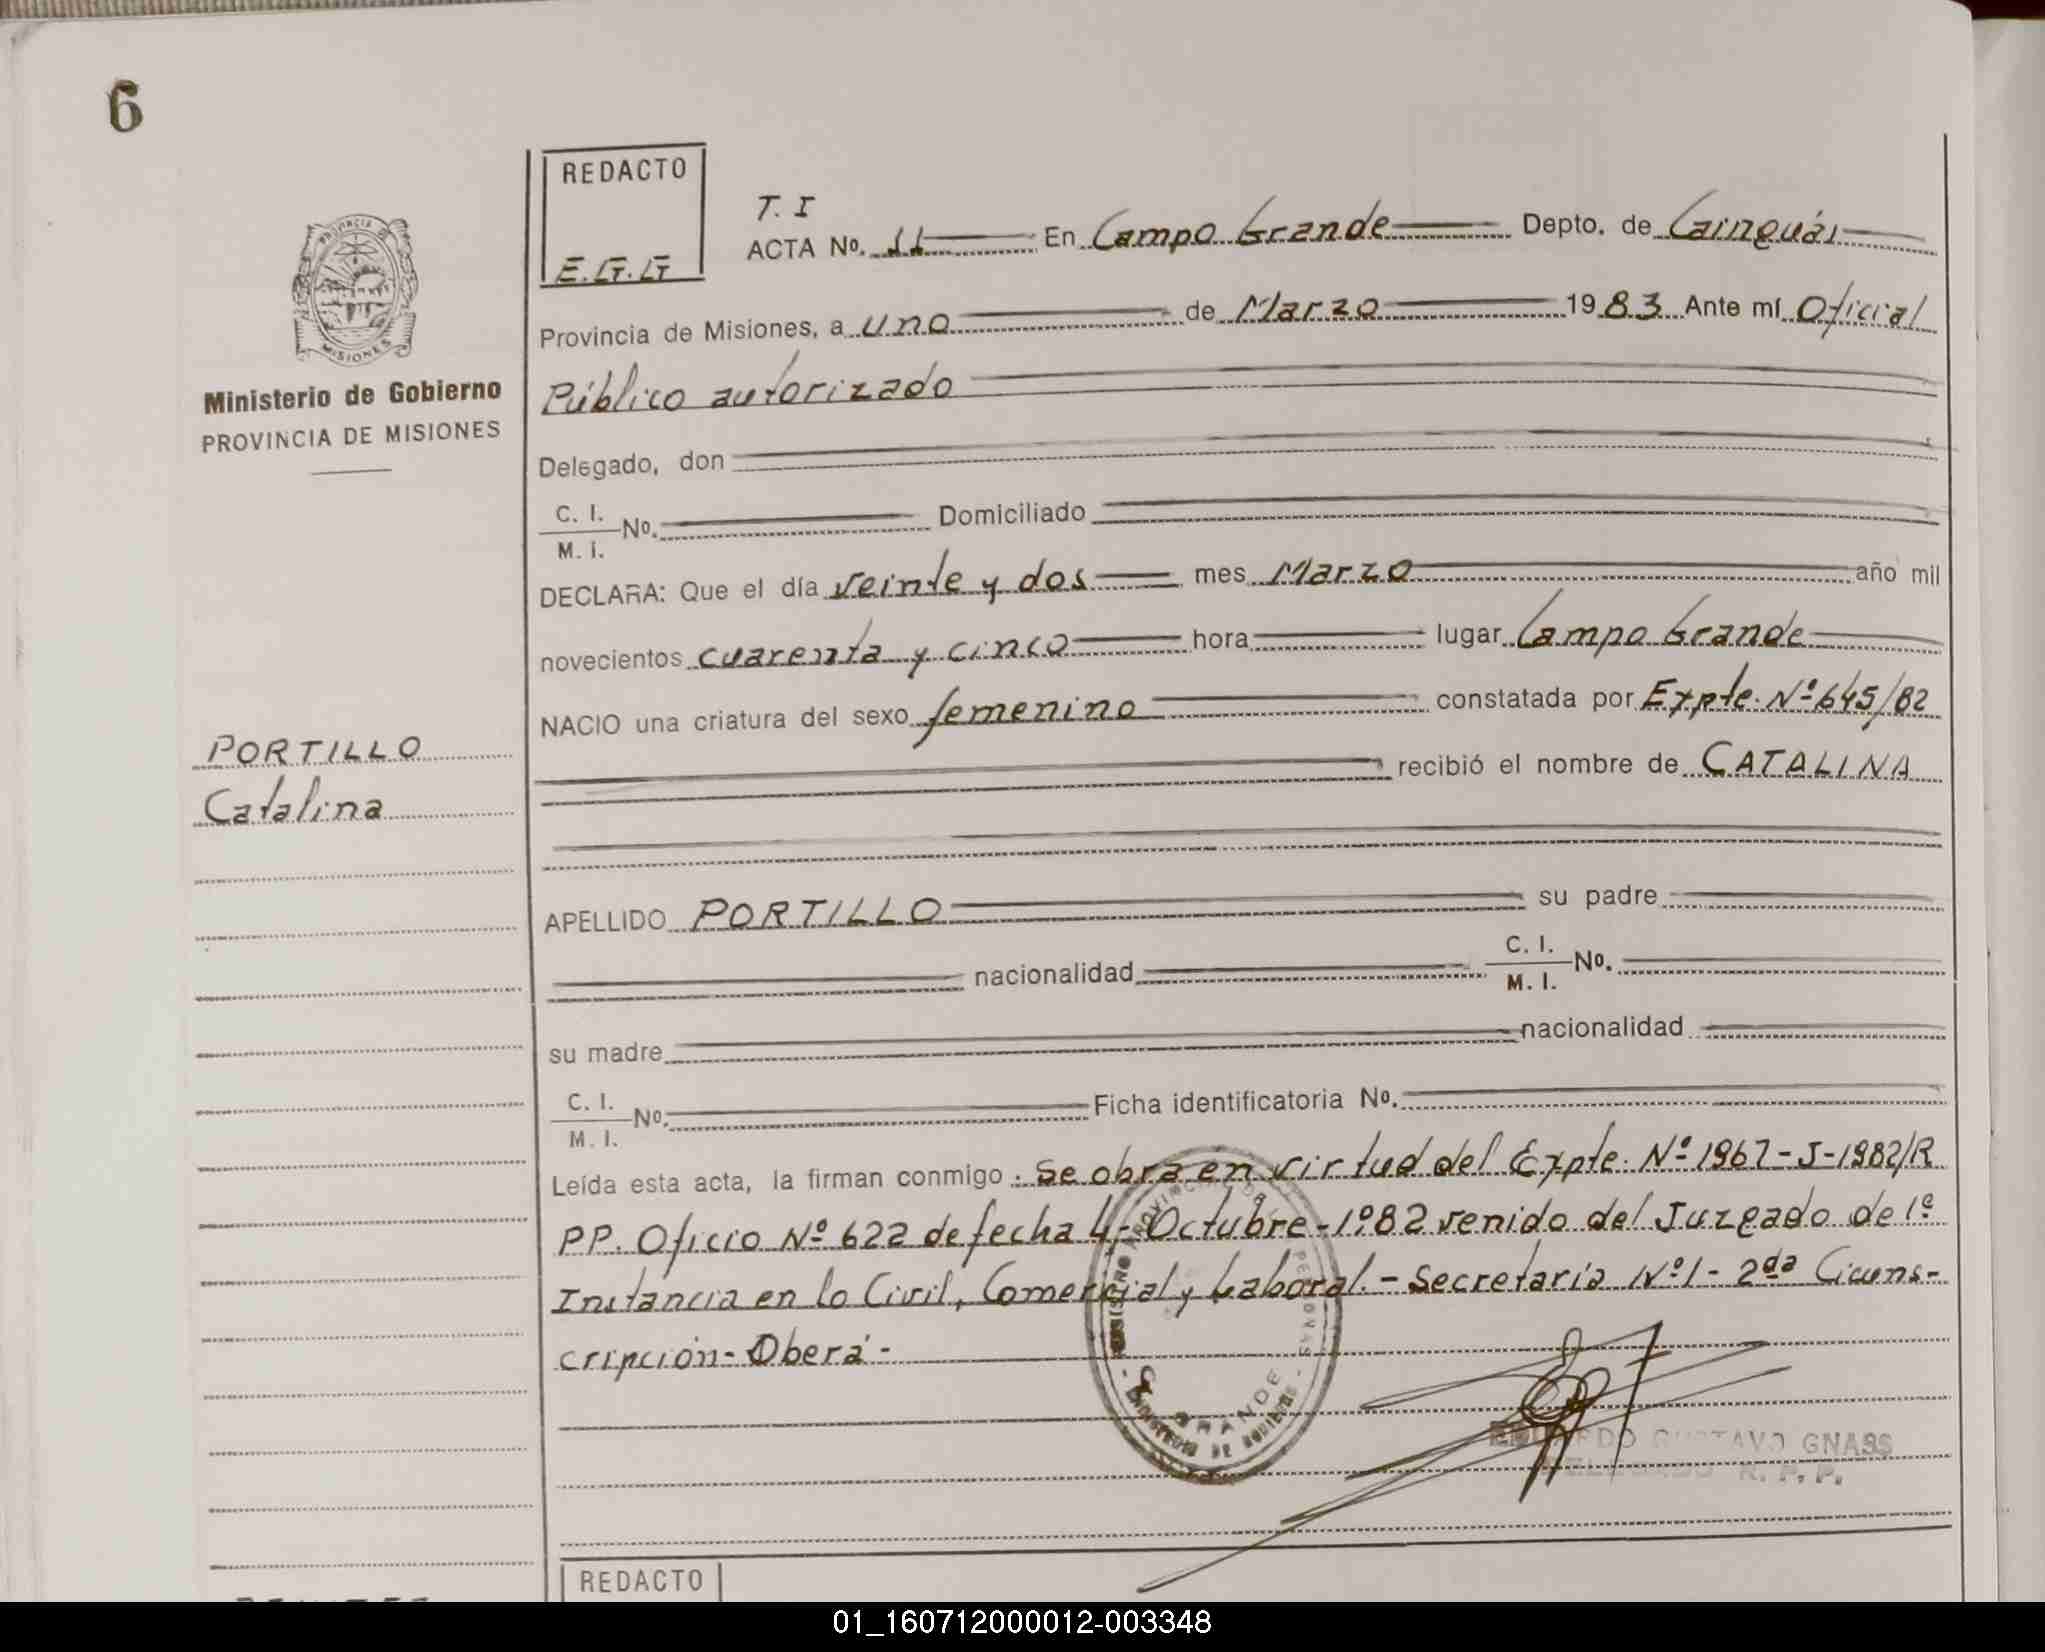 6
REDACTO
E.G.G
PROVINCIA DE
MISIONES
Ministerio de Gobierno
PROVINCIA DE MISIONES
T. I
ACTA No. 11 En Campo Grande Depto. de Cainguás
Provincia de Misiones, a uno de Marzo 1983 Ante mí Oficial
Público autorizado
Delegado, don
C. I.
M. I. No. Domiciliado
DECLARA: Que el día veinte y dos mes Marzo año mil
novecientos cuarenta y cinco hora lugar Campo Grande
NACIO una criatura del sexo femenino constatada por Expte. Nº 645/82
PORTILLO
Catalina
recibió el nombre de CATALINA
APELLIDO PORTILLO su padre
nacionalidad C. I.
M. I. No.
su madre nacionalidad
C. I.
M. I. No. Ficha identificatoria No.
Leída esta acta, la firman conmigo. Se obra en virtud del Expte. Nº 1967-J-1982/R
PP. Oficio Nº 622 de fecha 4-Octubre-1982 venido del Juzgado de 1º
Instancia en lo Civil, Comercial y Laboral.- Secretaría Nº 1- 2da Cicuns-
cripción-Oberá-
GRANDE
EDUARDO GUSTAVO GNASS
DELEGADO R. P. P.
REDACTO
01_160712000012-003348